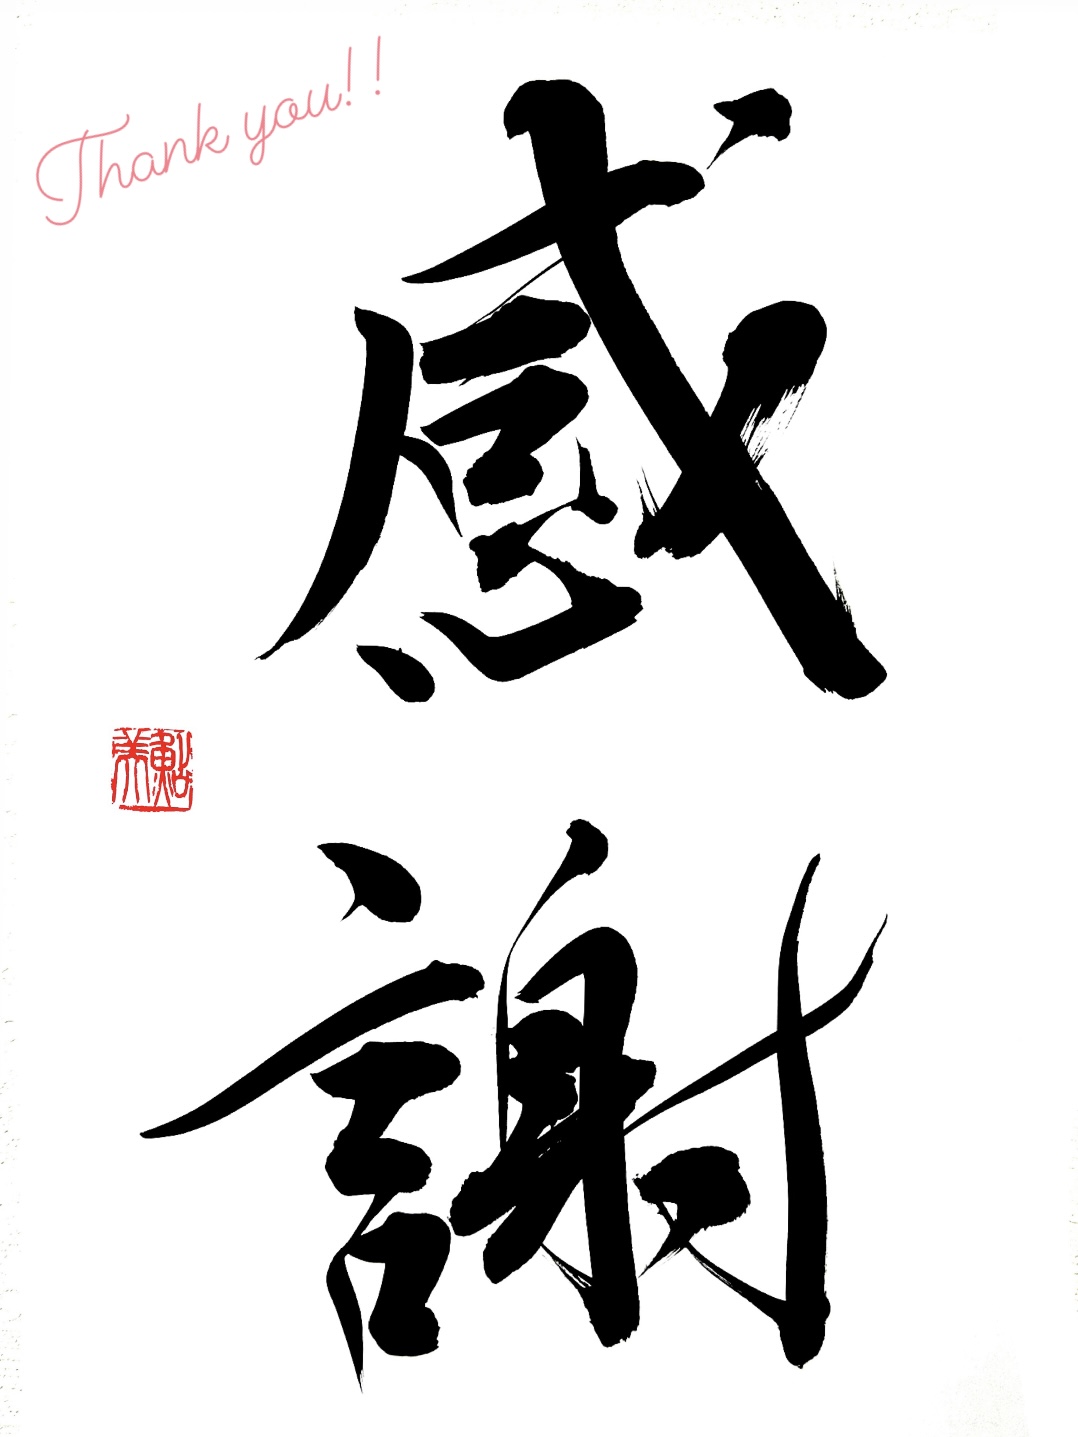 Thank you!!
感
謝